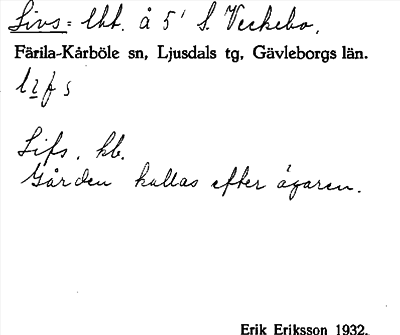 Livs = lht. å 5' S. Veckebo.
Färila-Kårböle sn, Ljusdals tg, Gävleborgs län.
Lifs. kb.
Gården kallas efter ägaren.
Erik Eriksson 1932.